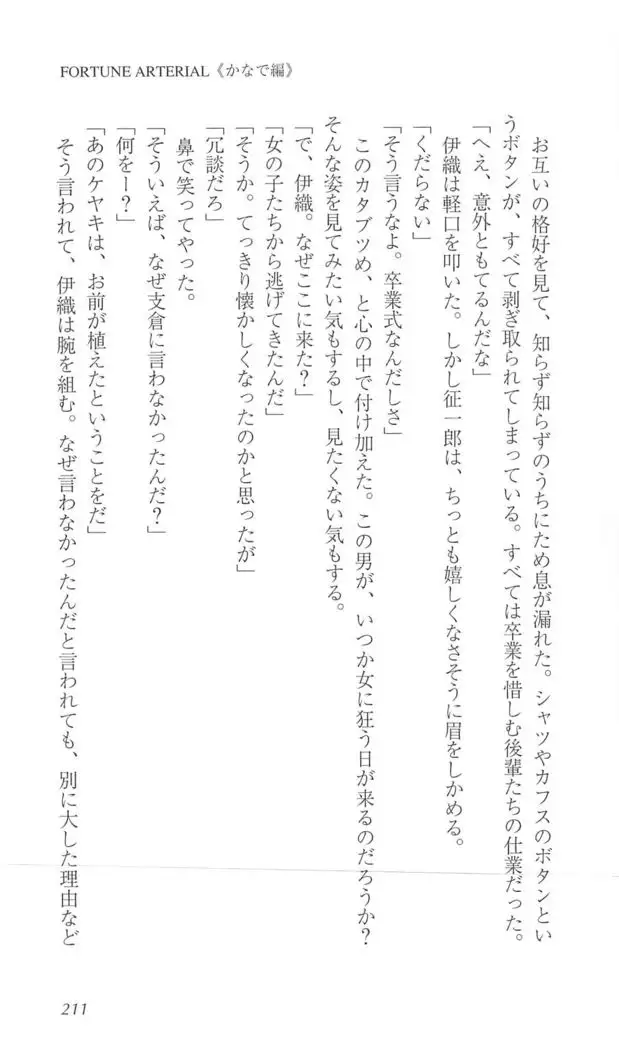 FORTUNE ARTERIAL《かなで編》
お互いの格好を見て、知らず知らずのうちにため息が漏れた。シャツやカフスのボタンとい
うボタンが、すべて剥ぎ取られてしまっている。すべては卒業を惜しむ後輩たちの仕業だった。
「へえ、意外ともてるんだな」
伊織は軽口を叩いた。しかし征一郎は、ちっとも嬉しくなさそうに眉をしかめる。
「くだらない」
「そう言うなよ。卒業式なんだしさ」
このカタブツめ、と心の中で付け加えた。この男が、いつか女に狂う日が来るのだろうか？
そんな姿を見てみたい気もするし、見たくない気もする。
「で、伊織。なぜここに来た？」
「女の子たちから逃げてきたんだ」
「そうか。てっきり懐かしくなったのかと思ったが」
「冗談だろ」
鼻で笑ってやった。
「そういえば、なぜ支倉に言わなかったんだ？」
「何をー？」
「あのケヤキは、お前が植えたということをだ」
そう言われて、伊織は腕を組む。なぜ言わなかったんだと言われても、別に大した理由など
211